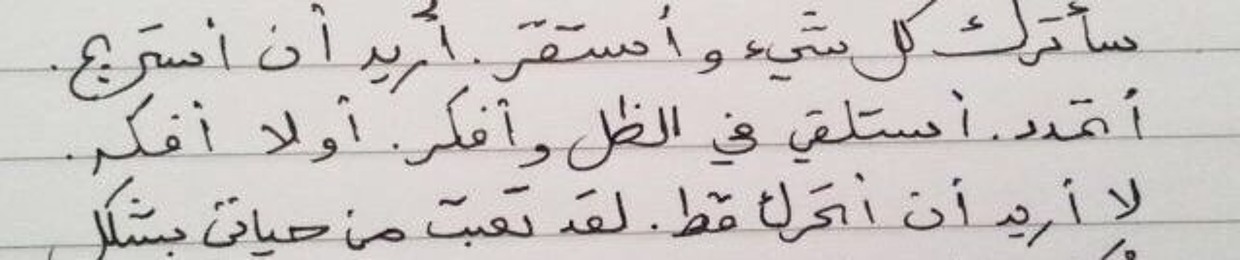 سأترك كل شيء وأستقر. أريد أن أستريح.
أتمدد. أستلقي في الظل وأفكر. أولا أفكر.
لا أريد أن أتحرك قط. لقد تعبت من حياتي بشكل